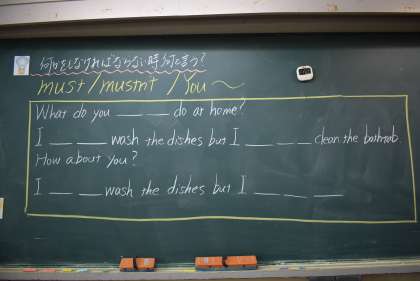 何をしなければならない時何と言う?
must/mustnt /You ~
What do you __ __ do at home?
I __ __ wash the dishes but I __ __ __ clean the bathtub.
How about you?
I __ __ wash the dishes but I __ __ __